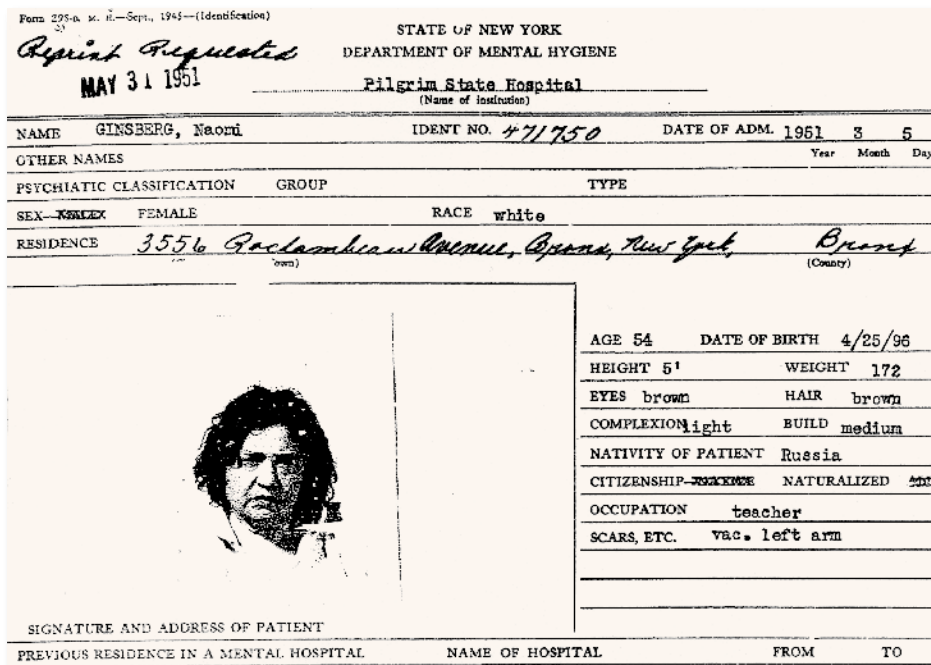 Form 298-a. M. H.—Sept., 1945—(Identification)
Reprint Requested
MAY 31 1951
STATE OF NEW YORK
DEPARTMENT OF MENTAL HYGIENE
Pilgrim State Hospital
(Name of institution)
NAME GINSBERG, Naomi IDENT NO. 471750 DATE OF ADM. 1951 3 5
Year Month Day
OTHER NAMES
PSYCHIATIC CLASSIFICATION GROUP TYPE
SEX— FEMALE RACE white
RESIDENCE 3556 Rochambeau Avenue, Bronx, New York, Bronx
own) (County)
AGE 54 DATE OF BIRTH 4/25/96
HEIGHT 5' WEIGHT 172
EYES brown HAIR brown
COMPLEXION light BUILD medium
NATIVITY OF PATIENT Russia
CITIZENSHIP— NATURALIZED
OCCUPATION teacher
SCARS, ETC. vac. left arm
SIGNATURE AND ADDRESS OF PATIENT
PREVIOUS RESIDENCE IN A MENTAL HOSPITAL NAME OF HOSPITAL FROM TO